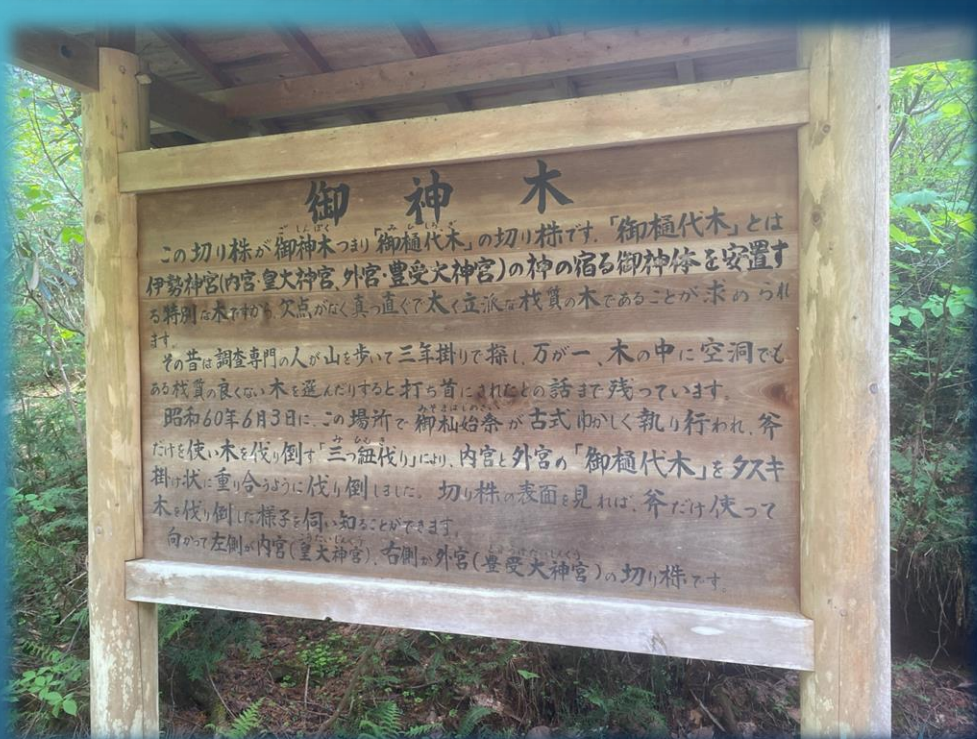 御神木
この切り株が御神木つまり「御樋代木」の切り株です。「御樋代木」とは
伊勢神宮(内宮・皇大神宮、外宮・豊受大神宮)の神の宿る御神体を安置す
る特別な木ですから、欠点がなく真っ直ぐで太く立派な材質の木であることが求められ
ます。
その昔は調査専門の人が山を歩いて三年掛りで探し、万が一、木の中に空洞でも
ある材質の良くない木を選んだりすると打ち首にされたとの話まで残っています。
昭和60年6月3日に、この場所で御杣始祭が古式ゆかしく執り行われ、斧
だけを使い木を伐り倒す「三つ紐伐り」により、内宮と外宮の「御樋代木」をタスキ
掛け状に重り合うように伐り倒しました。切り株の表面を見れば、斧だけ使って
木を伐り倒した様子を伺い知ることができます。
向かって左側が内宮(皇大神宮)、右側が外宮(豊受大神宮)の切り株です。